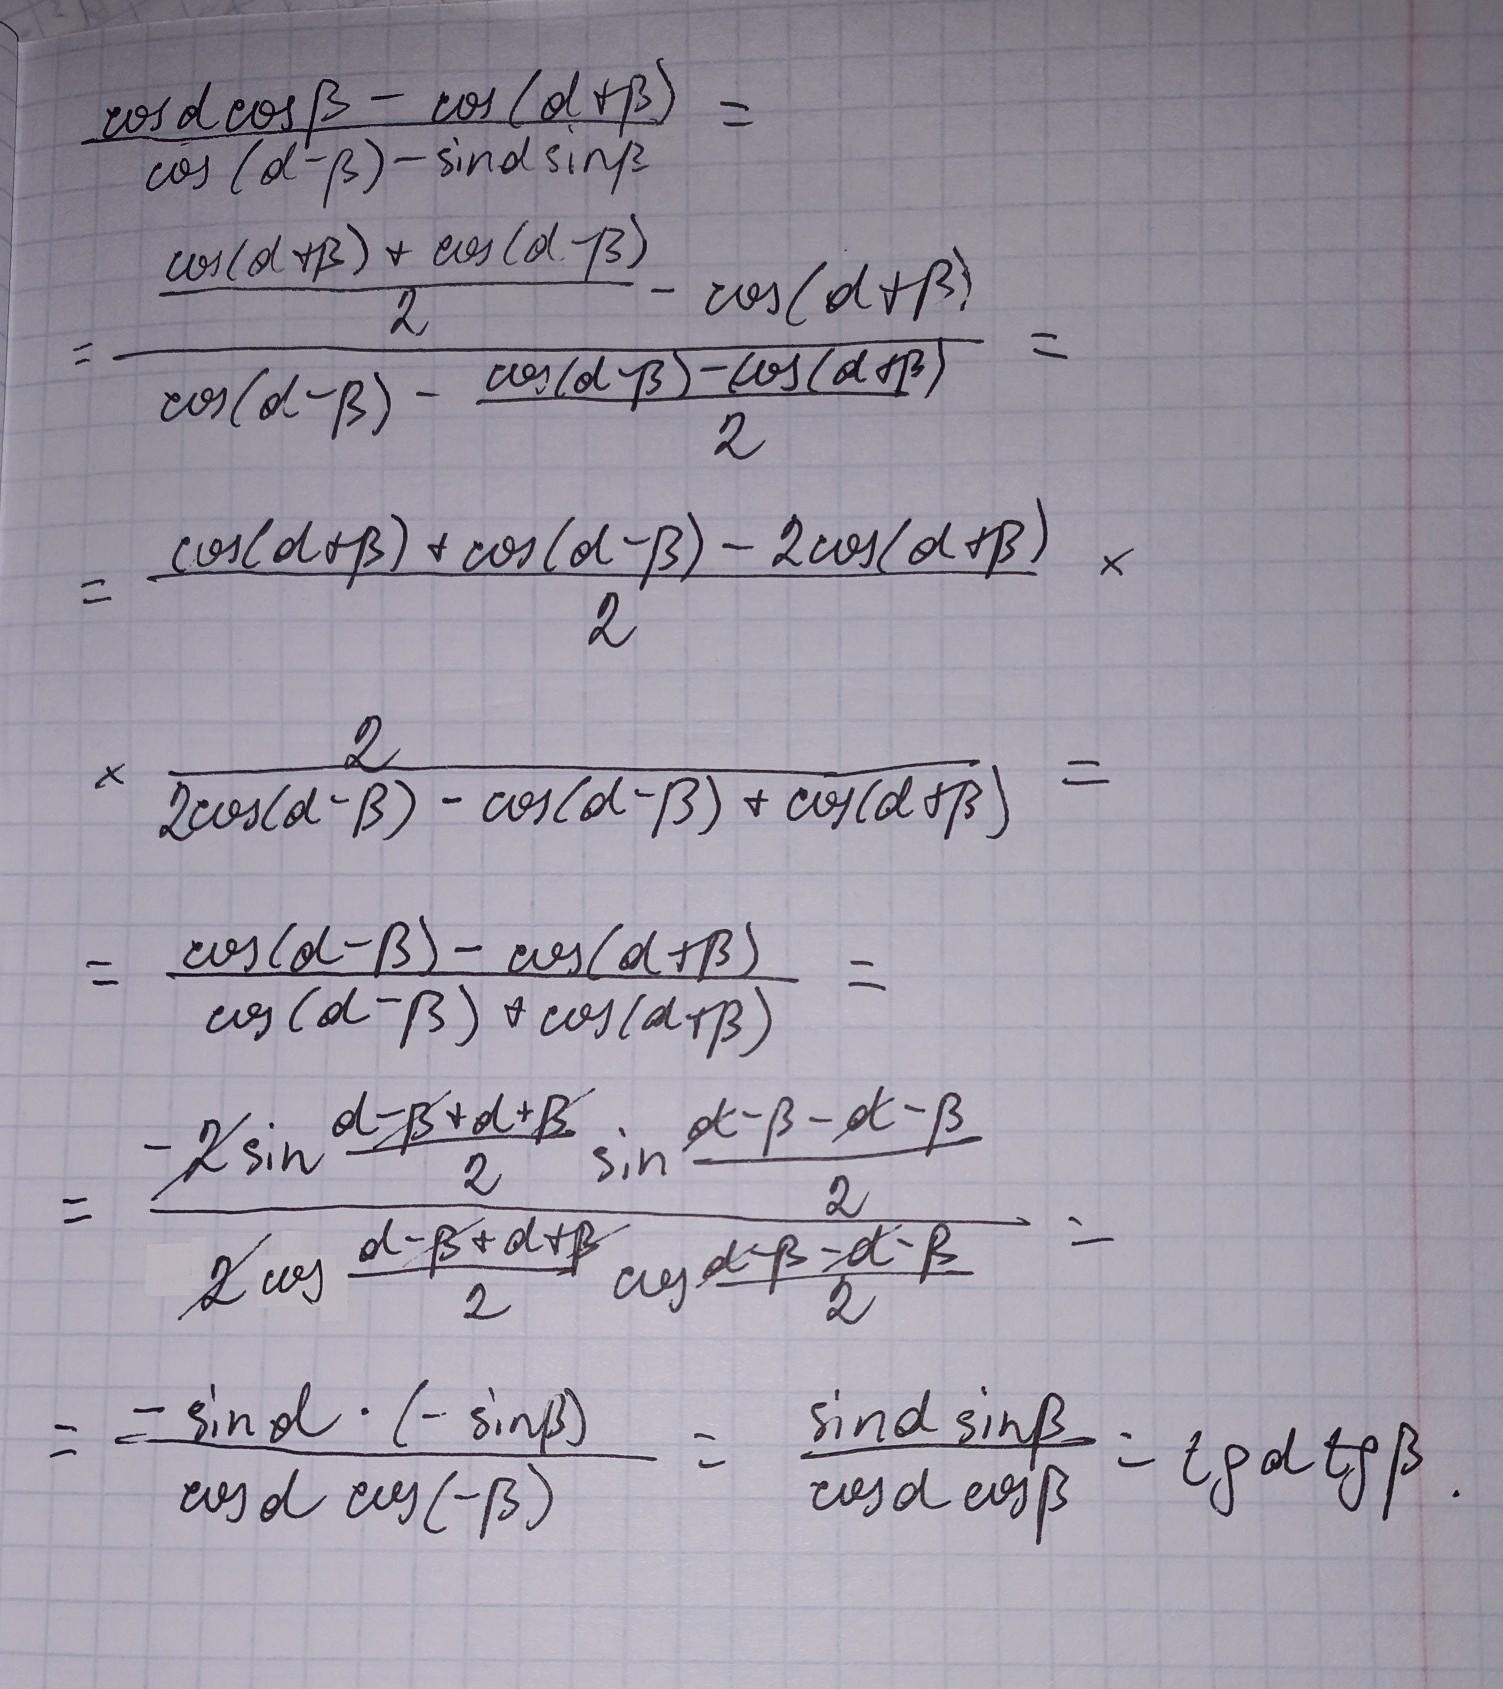 cosα cosβ − cos(α+β) =
cos(α−β) − sinα sinβ
cos(α+β) + cos(α−β)
2
− cos(α+β)
=
=
cos(α−β) −
cos(α−β) − cos(α+β)
2
= cos(α+β) + cos(α−β) − 2cos(α+β) ×
2
× 2
2cos(α−β) − cos(α−β) + cos(α+β) =
= cos(α−β) − cos(α+β) =
cos(α−β) + cos(α+β)
−2 sin α−β+α+β sin α−β−α−β
2 2
= =
2 cos α−β+α+β cos α−β−α−β
2 2
= −sinα · (−sinβ) = sinα sinβ = tgα tgβ.
cosα cos(−β) cosα cosβ